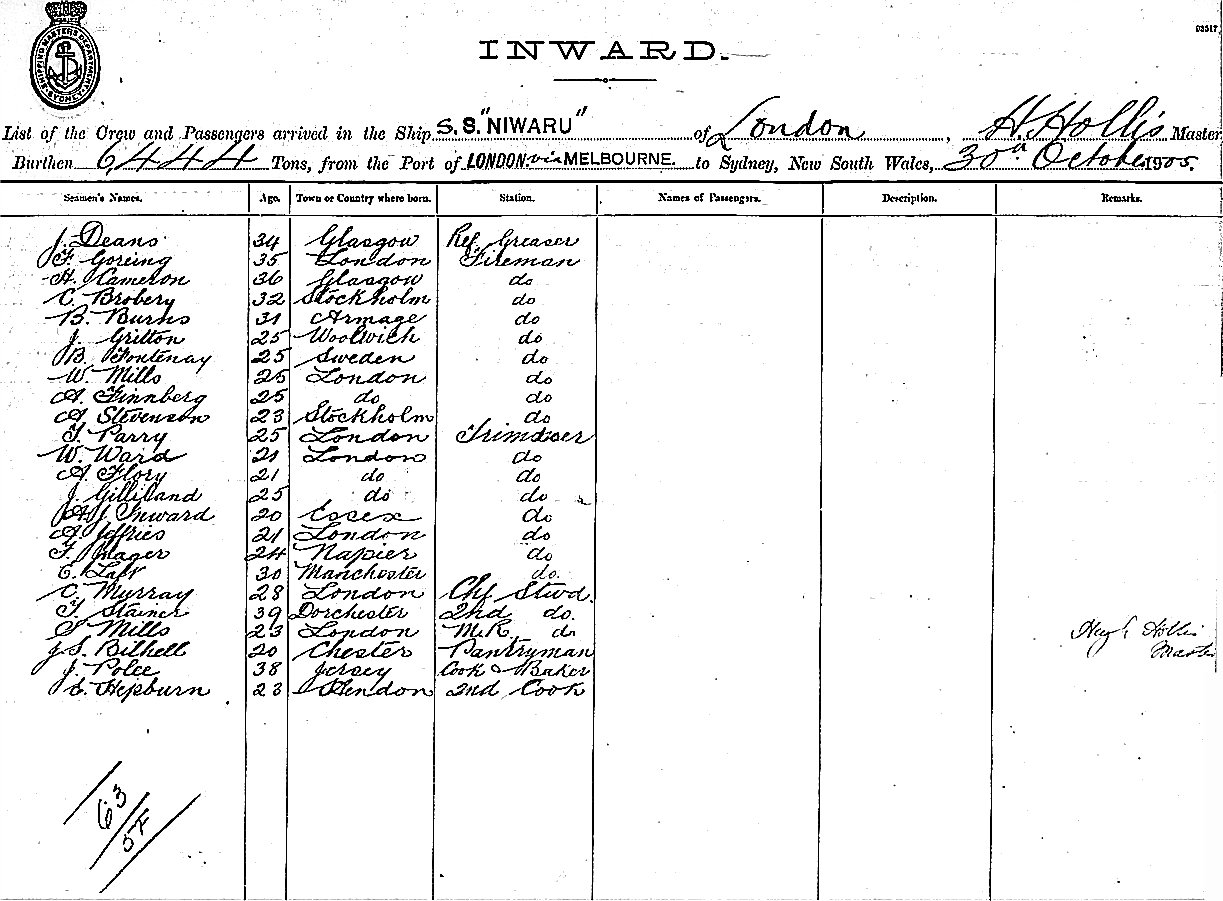 03517
SHIPPING MASTERS DEPARTMENT SYDNEY
INWARD.
List of the Crew and Passengers arrived in the Ship S. S. "NIWARU" of London, H. Hollis Master
Burthen 6444 Tons, from the Port of LONDON via MELBOURNE. to Sydney, New South Wales, 30th October 1905.
Seamen's Names. Age. Town or Country where born. Station. Names of Passengers. Description. Remarks.
J. Deans 34 Glasgow Ref. Greaser
F. Goreing 35 London Fireman
H. Cameron 36 Glasgow do
C. Brobery 32 Stockholm do
B. Burns 31 Armage do
J. Gritton 25 Woolwich do
B. Fontenay 25 Sweden do
W. Mills 25 London do
A. Finnberg 25 do do
A. Stevenson 23 Stockholm do
T. Parry 25 London
W. Ward 21 London do
A. Flory 21 do do
J. Gilliland 25 do do
A.J. Inward 20 Essex do
A. Jeffries 21 London do
F. Mager 24 Napier do
E. 30 Manchester do.
C. Myrray 28 London Chf Stwd.
T. Stainer 39 Dorchester 2nd do.
S. Mills 23 London M.R. do
J.S. Bithell 20 Chester Pantryman
Hugh Hollis
Master
J. Polee 38 Jersey Cook & Baker
E. Hepburn 23 Hendon 2nd Cook
63
5F